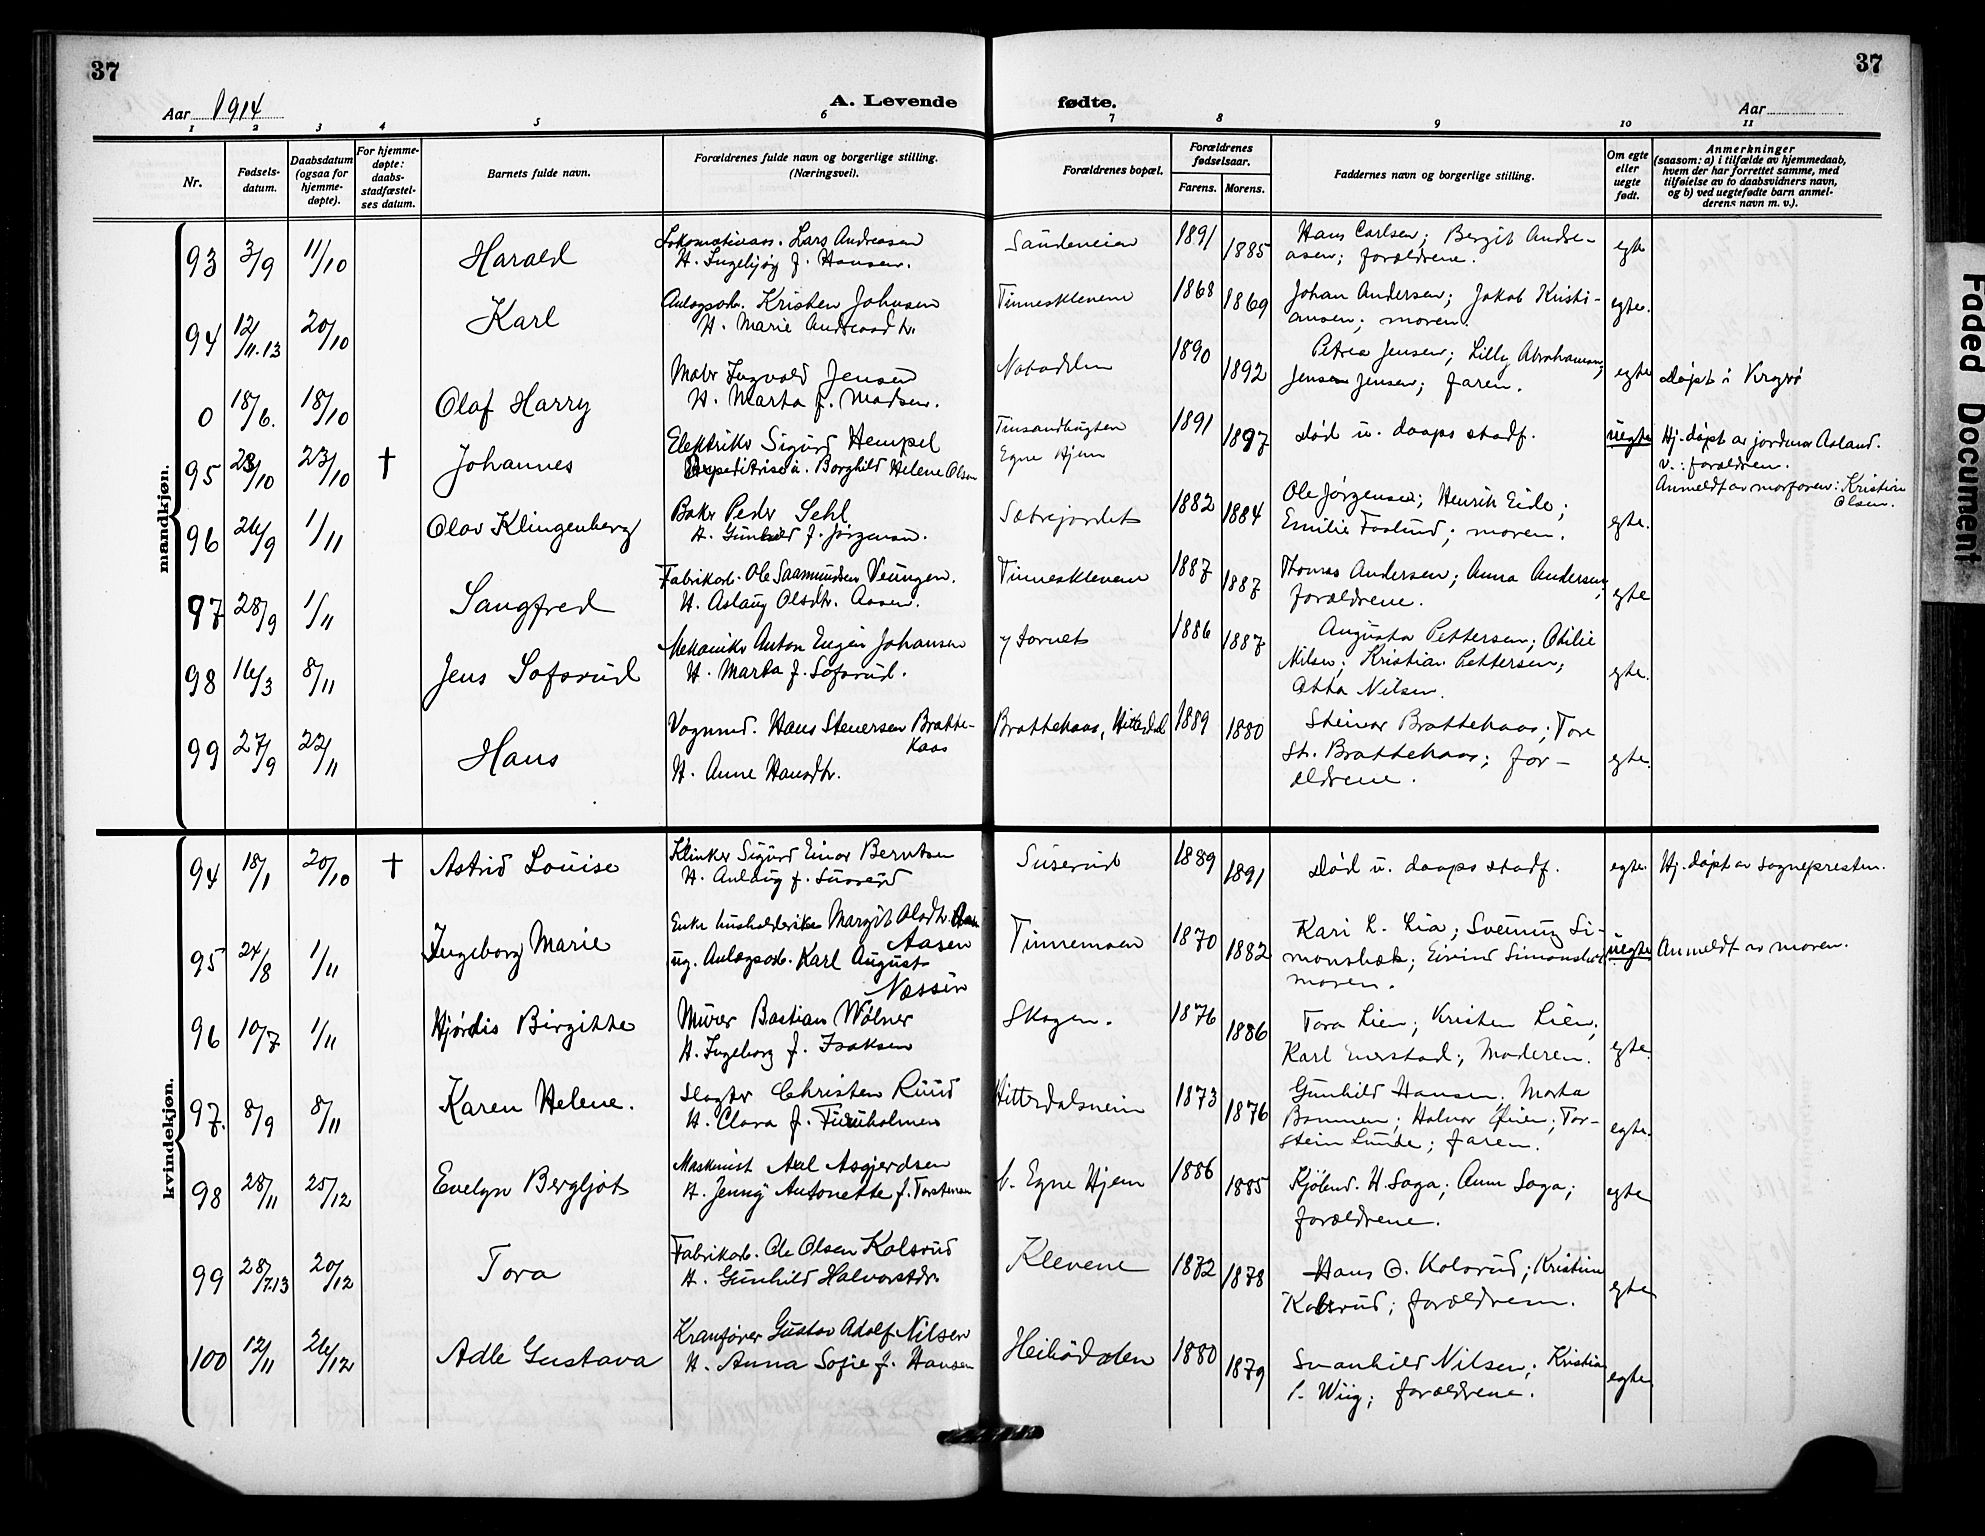 37
37
Aar 1914
A. Levende fødte.
Aar
1 2 3 4 5 6 7 8 9 10 11
Nr.
Fødsels-
datum.
Daabsdatum
(ogsaa for
hjemme-
døpte).
For hjemme-
døpte:
daabs-
stadfæstel-
ses datum.
Barnets fulde navn.
Forældrenes fulde navn og borgerlige stilling.
(Næringsvei).
Forældrenes bopæl.
Forældrenes
fødselsaar.
Farens. Morens.
Faddernes navn og borgerlige stilling.
Om egte
eller
uegte
født.
Anmerkninger
(saasom: a) i tilfælde av hjemmedaab,
hvem der har forrettet samme, med
tilføielse av to daabsvidners navn,
og b) ved uegtefødte barn anmel-
derens navn m. v.).
mandkjøn.
93 3/9 11/10 Harald
Lars Andreasen
H. Ingebjøg f. Hansen.
Sandeveien 1891 1885
Hans Carlsen; Bergit Andre-
asen; forældrene.
egte
94 12/11.13 20/10 Karl
Anlægsarb. Kristen Johnsen
H. Marie Andreasdtr.
Tinnesklevene 1868 1869
Johan Andersen; Jakob Kristi-
ansen; moren.
egte.
0 18/6. 18/10 Olaf Harry
Maler Ingvald Jensen
H. Marta f. Madsen.
Notodden 1890 1892
Petrea Jensen; Lilly Abrahamsen;
Jensen Jensen; faren.
egte
Døpt i Kragerø
95 23/10 23/10 † Johannes
Elektriker Sigurd Hempel
Borghild Helene Olsen
Tinsandbugten
Egne Hjem
1891 1897
Død u. daaps stadf.
uegte
Hj. døpt av jordmor Aasland.
v.: forældren.
Anmeldt av morfaren: Kristian
Olsen.
96 26/9 1/11 Olav Klingenberg
Baker Peder Sehl
H. Gunhild f. Jørgensen.
Sætrejordet 1882 1884
Ole Jørgensen; Henrik Eide;
Emilie Foslund; moren.
egte.
97 28/9 1/11 Sangfred
Fabrikarb. Ole Saamundsen Veungen.
H. Aslaug Olsdtr. Aasen.
Tinnesklevene 1887 1887
Thomas Andersen; Anna Andersen;
forældrene.
egte
98 16/3 8/11 Jens Sofsrud
Mekaniker Anton Eugen Johansen
H. Marta f. Sofsrud.
1886 1887
Augusta Pettersen; Otilie
Nilsen; Kristian Pettersen;
Otto Nilsen.
egte.
99 27/9 22/11 Hans
Vognmd. Hans Steuersen Bratte-
kaas
H. Anne Hansdtr.
Brattekaas, Hitterdal 1889 1880
Steinar Brattekaas; Tore
St. Brattekaas; for-
ældrene.
egte.
kvindekjøn.
94 18/1 20/10 † Astrid Louise
Klinker Sigurd Einar Berntsen
H. Aslaug f. Suserud
Suserud 1889 1891
Død u. daaps stadf.
egte.
Hj. døpt av sognepresten.
95 24/8 1/11 Ingeborg Marie
Enke husholderske Margit Olsdtr.
Aasen
ug. Anlægsarb. Karl August
Næssen
Tinnemoen 1870 1882
Kari L. Lia; Sveinung Si-
monsbæk; Eivind Simonsbæk
moren.
uegte
Anmeldt av moren.
96 10/7 1/11 Hjørdis Birgitte
Murer Bastian Wølner
H. Ingeborg f. Isaksen
Skogen. 1876 1886
Tora Lien; Kristen Lien;
Karl Enerstad; Moderen.
egte.
97. 8/9 8/11 Karen Helene.
Slagter Christen Ruud
H. Clara f. Furuholmen
Hitterdalsveien 1873 1876
Gunhild Hansen; Marta
Bommen; Halvor Øien; Tor-
stein Lunde; faren.
egte.
98 28/11 25/12 Evelyn Bergljot
Maskinist Axel Asgjerdsen
H. Jenny Antonette f. Torstensen
b. Egne Hjem 1886 1885
Kjøbmd. H. Saga; Anna Saga;
forældrene.
egte
99 28/7.13 20/12 Tora
Fabrikarb. Ole Olsen Kolsrud
H. Gunhild Halvorsdtr.
Klevene 1872 1878
Hans O. Kolsrud; Kristine
Kolsrud; forældrene.
egte
100 12/11 26/12 Adle Gustava
Kranfører Gustav Adolf Nilsen
H. Anna Sofie f. Hansen
Heibødalen 1880 1879
Svanhild Nilsen; Kristian
P. Wiig; forældrene.
egte
Faded Document